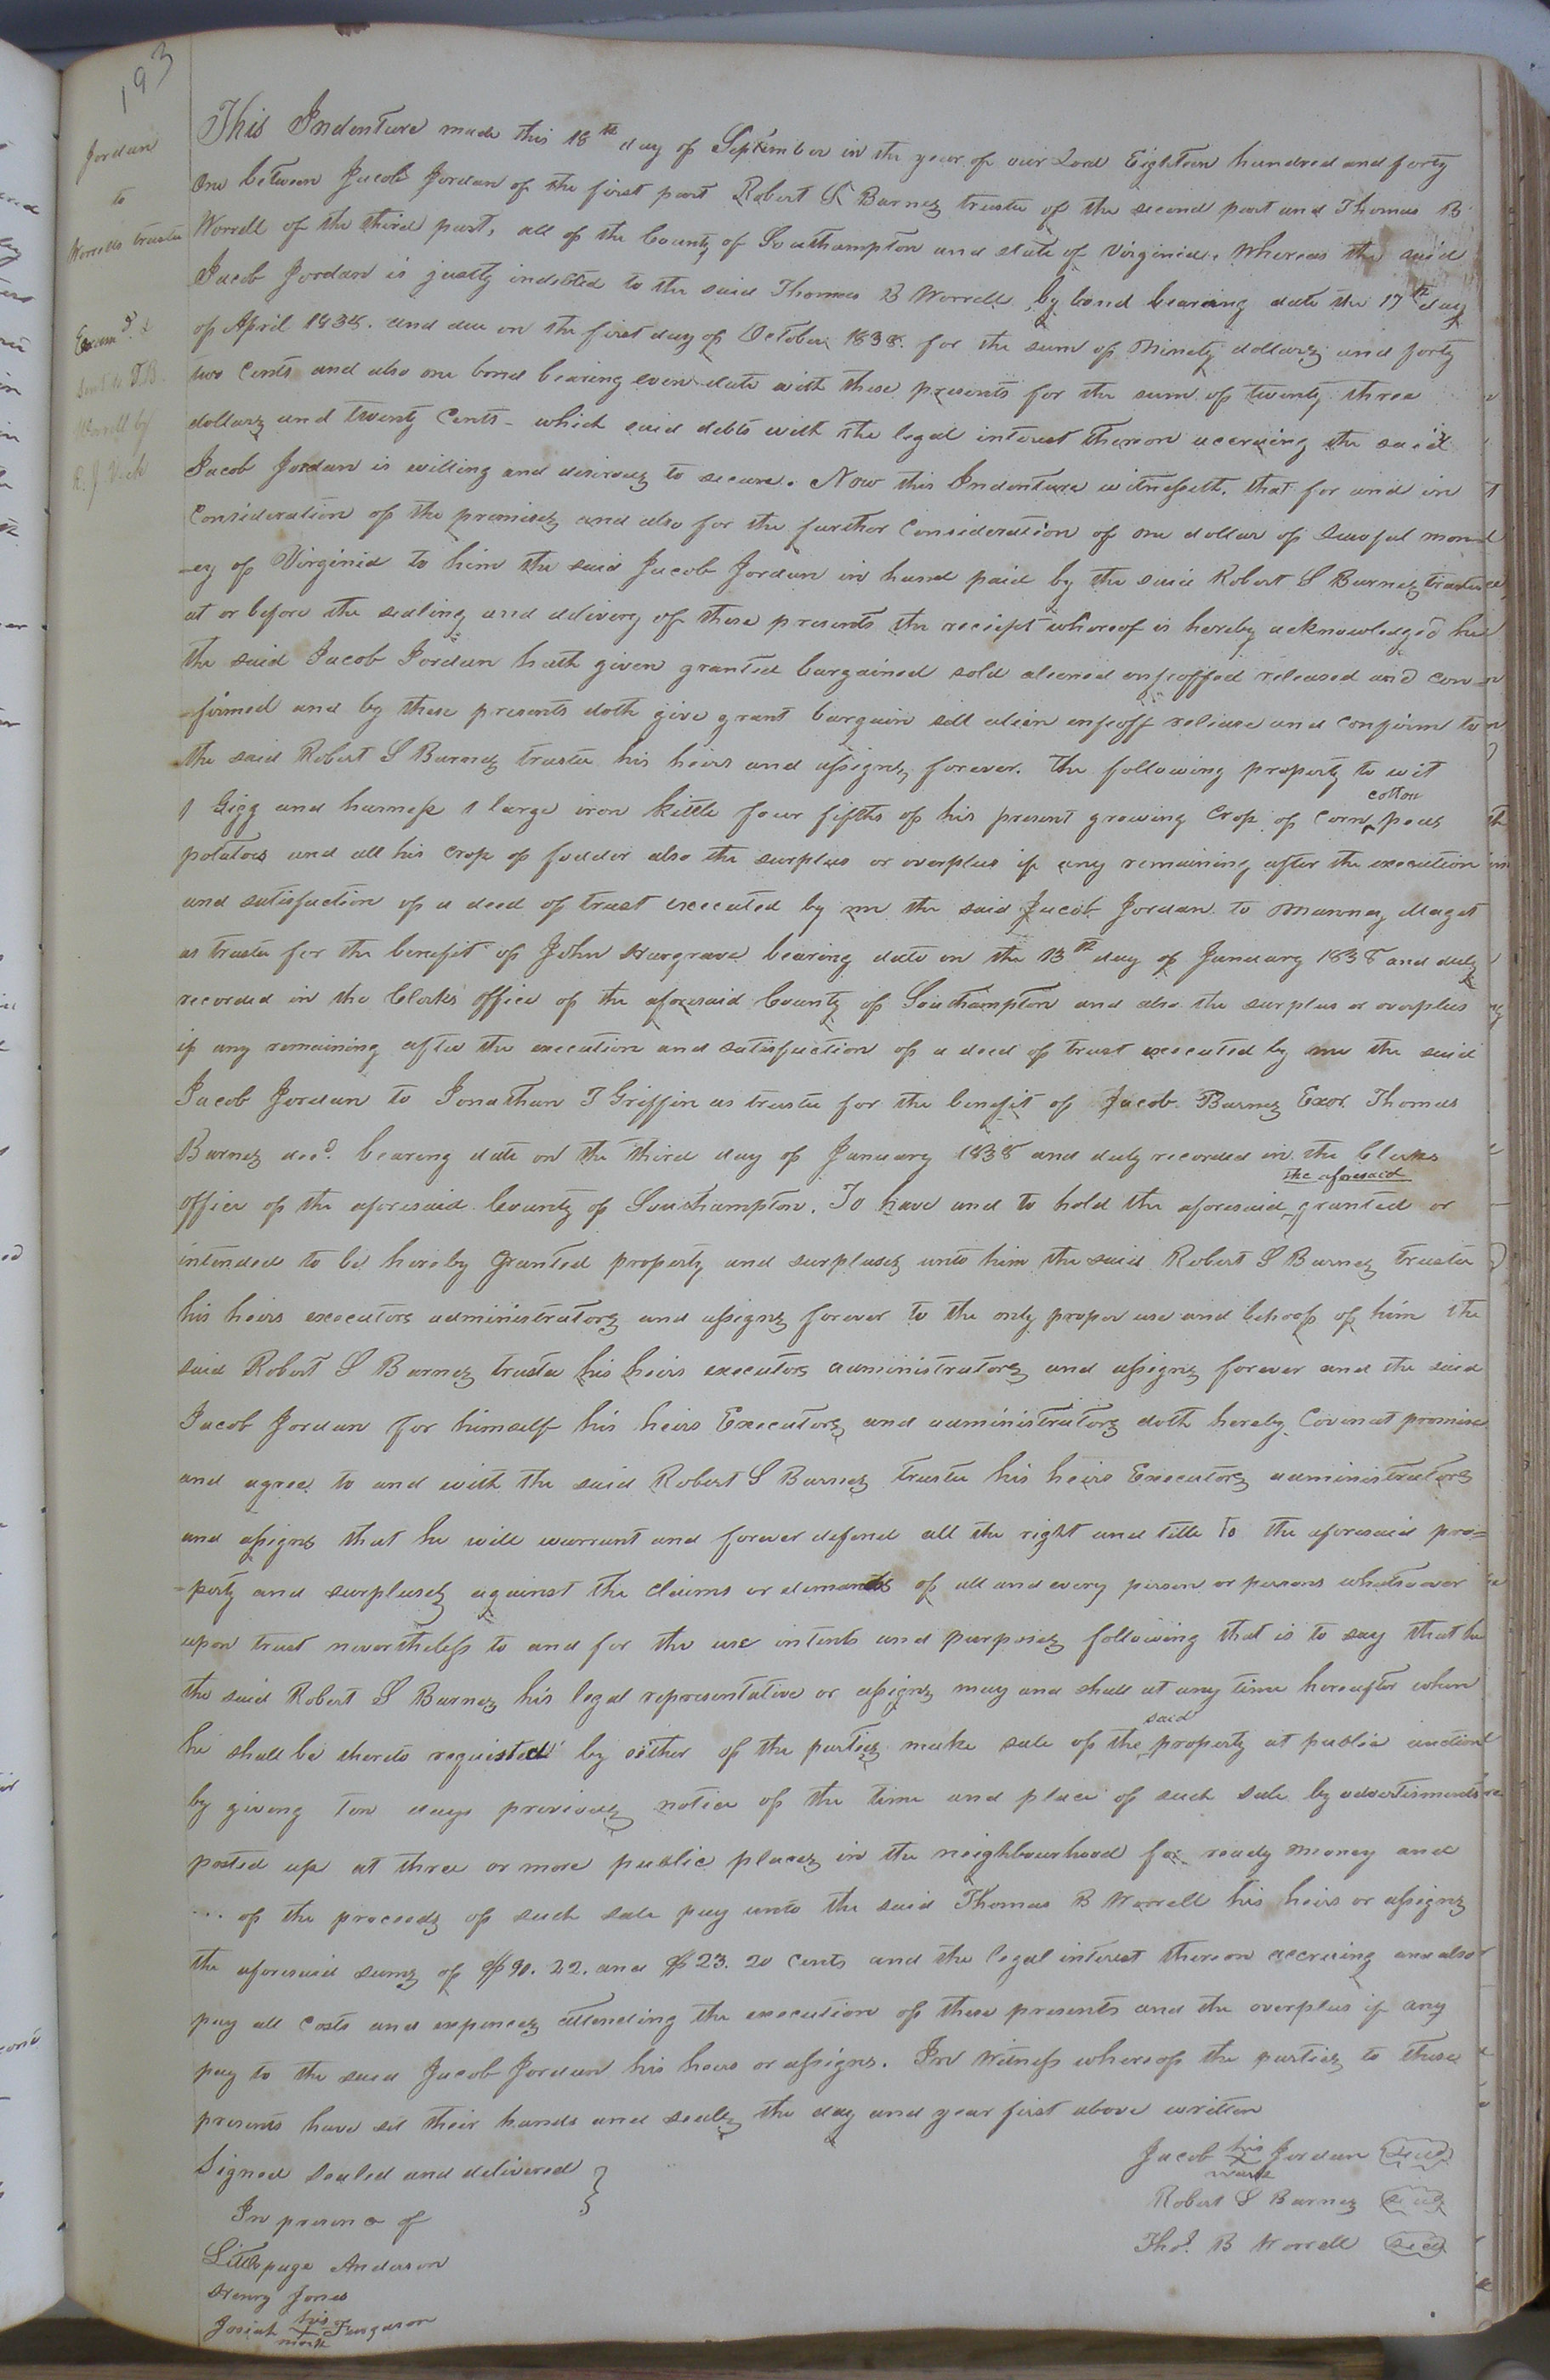 193
Jordan
to
Worrells trustee
Examd. &
sent to T.B.
Worrell by
R. J. Vick
This Indenture made this 18th day of September in the year of our Lord Eighteen hundred and forty
One between Jacob Jordan of the first part Robert S Barnes trustee of the second part and Thomas B
Worrell of the third part, all of the County of Southampton and state of Virginia. Whereas the said
Jacob Jordan is justly indebted to the said Thomas B Worrell by bond bearing date the 17th day
of April 1838. and due on the first day of October 1838. for the sum of Ninety dollars and forty
two Cents and also one bond bearing even date with these presents for the sum of twenty three
dollars and twenty Cents - which said debts with the legal interest thereon accruing the said
Jacob Jordan is willing and desirous to secure. Now this Indenture witnesseth. that for and in
Consideration of the premises and also for the further Consideration of one dollar of lawful mon
-ey of Virginia to him the said Jacob Jordan in hand paid by the said Robert S Barnes trustee
at or before the sealing and delivery of these presents the reciept whereof is hereby acknowledged he
the said Jacob Jordan hath given granted bargained sold aliened enfeoffed released and con-
-firmed and by these presents doth give grant bargain sell alien enfeoff release and confirm to
the said Robert S Barnes trustee his heirs and assigns forever. the following property to wit
cotton
1 Gigg and harness 1 large iron kittle four fifths of his present growing Crop of Corn peas
potatoes and all his crop of fodder also the surplus or overplus if any remaining after the execution
and satisfaction of a deed of trust executed by me the said Jacob Jordan to Manney Maget
as trustee for the benefit of John Hargrave bearing date on the 13th day of January 1838 and duly
recorded in the Clerks office of the aforesaid County of Southampton and also the surplus or overplus
if any remaining after the execution and satisfaction of a deed of trust executed by me the said
Jacob Jordan to Jonathan T Griffin as trustee for the benefit of Jacob Barnes Exor. Thomas
Barnes decd. bearing date on the third day of January 1838 and duly recorded in the Clerks
the aforesaid
office of the aforesaid County of Southampton. To have and to hold the aforesaid granted or
intended to be hereby granted property and surpluses unto him the said Robert S Barnes trustee
his heirs executors administrators and assigns forever to the only proper use and behoof of him the
said Robert S Barnes trustee his heirs executors administrators and assigns forever and the said
Jacob Jordan for himself his heirs Executors and administrators doth hereby Covenat promise
and agree to and with the said Robert S Barnes trustee his heirs Executors administrators
and assigns that he will warrant and forever defend all the right and title to the aforesaid pro=
-perty and surpluses against the claims or demands of all and every person or persons whatsoever
upon trust nevertheless to and for the use intents and purposes following that is to say that he
the said Robert S Barnes his legal representative or assigns may and shall at any time hereafter when
said
he shall be thereto requisted by either of the parties make sale of the property at public auction
by giving Ten days previous notice of the time and place of such sale by advertisments
posted up at three or more public places in the neighbourhood for ready money and
of the proceeds of such sale pay unto the said Thomas B Worrell his heirs or assigns
the aforesaid sums of $90. 22. and $23. 20 cents and the legal interest thereon accruing and also
pay all costs and expences attending the execution of these presents and the overplus if any
pay to the said Jacob Jordan his heirs or assigns. In Witness whereof the parties to these
presents have set their hands and seals the day and year first above written
Signed sealed and delivered
In presence of
Littlepage Anderson
Henry Jones
Josiah his X mark Ferguson
Jacob his X mark Jordan seal
Robert S Barnes seal
Thos. B Worrell seal